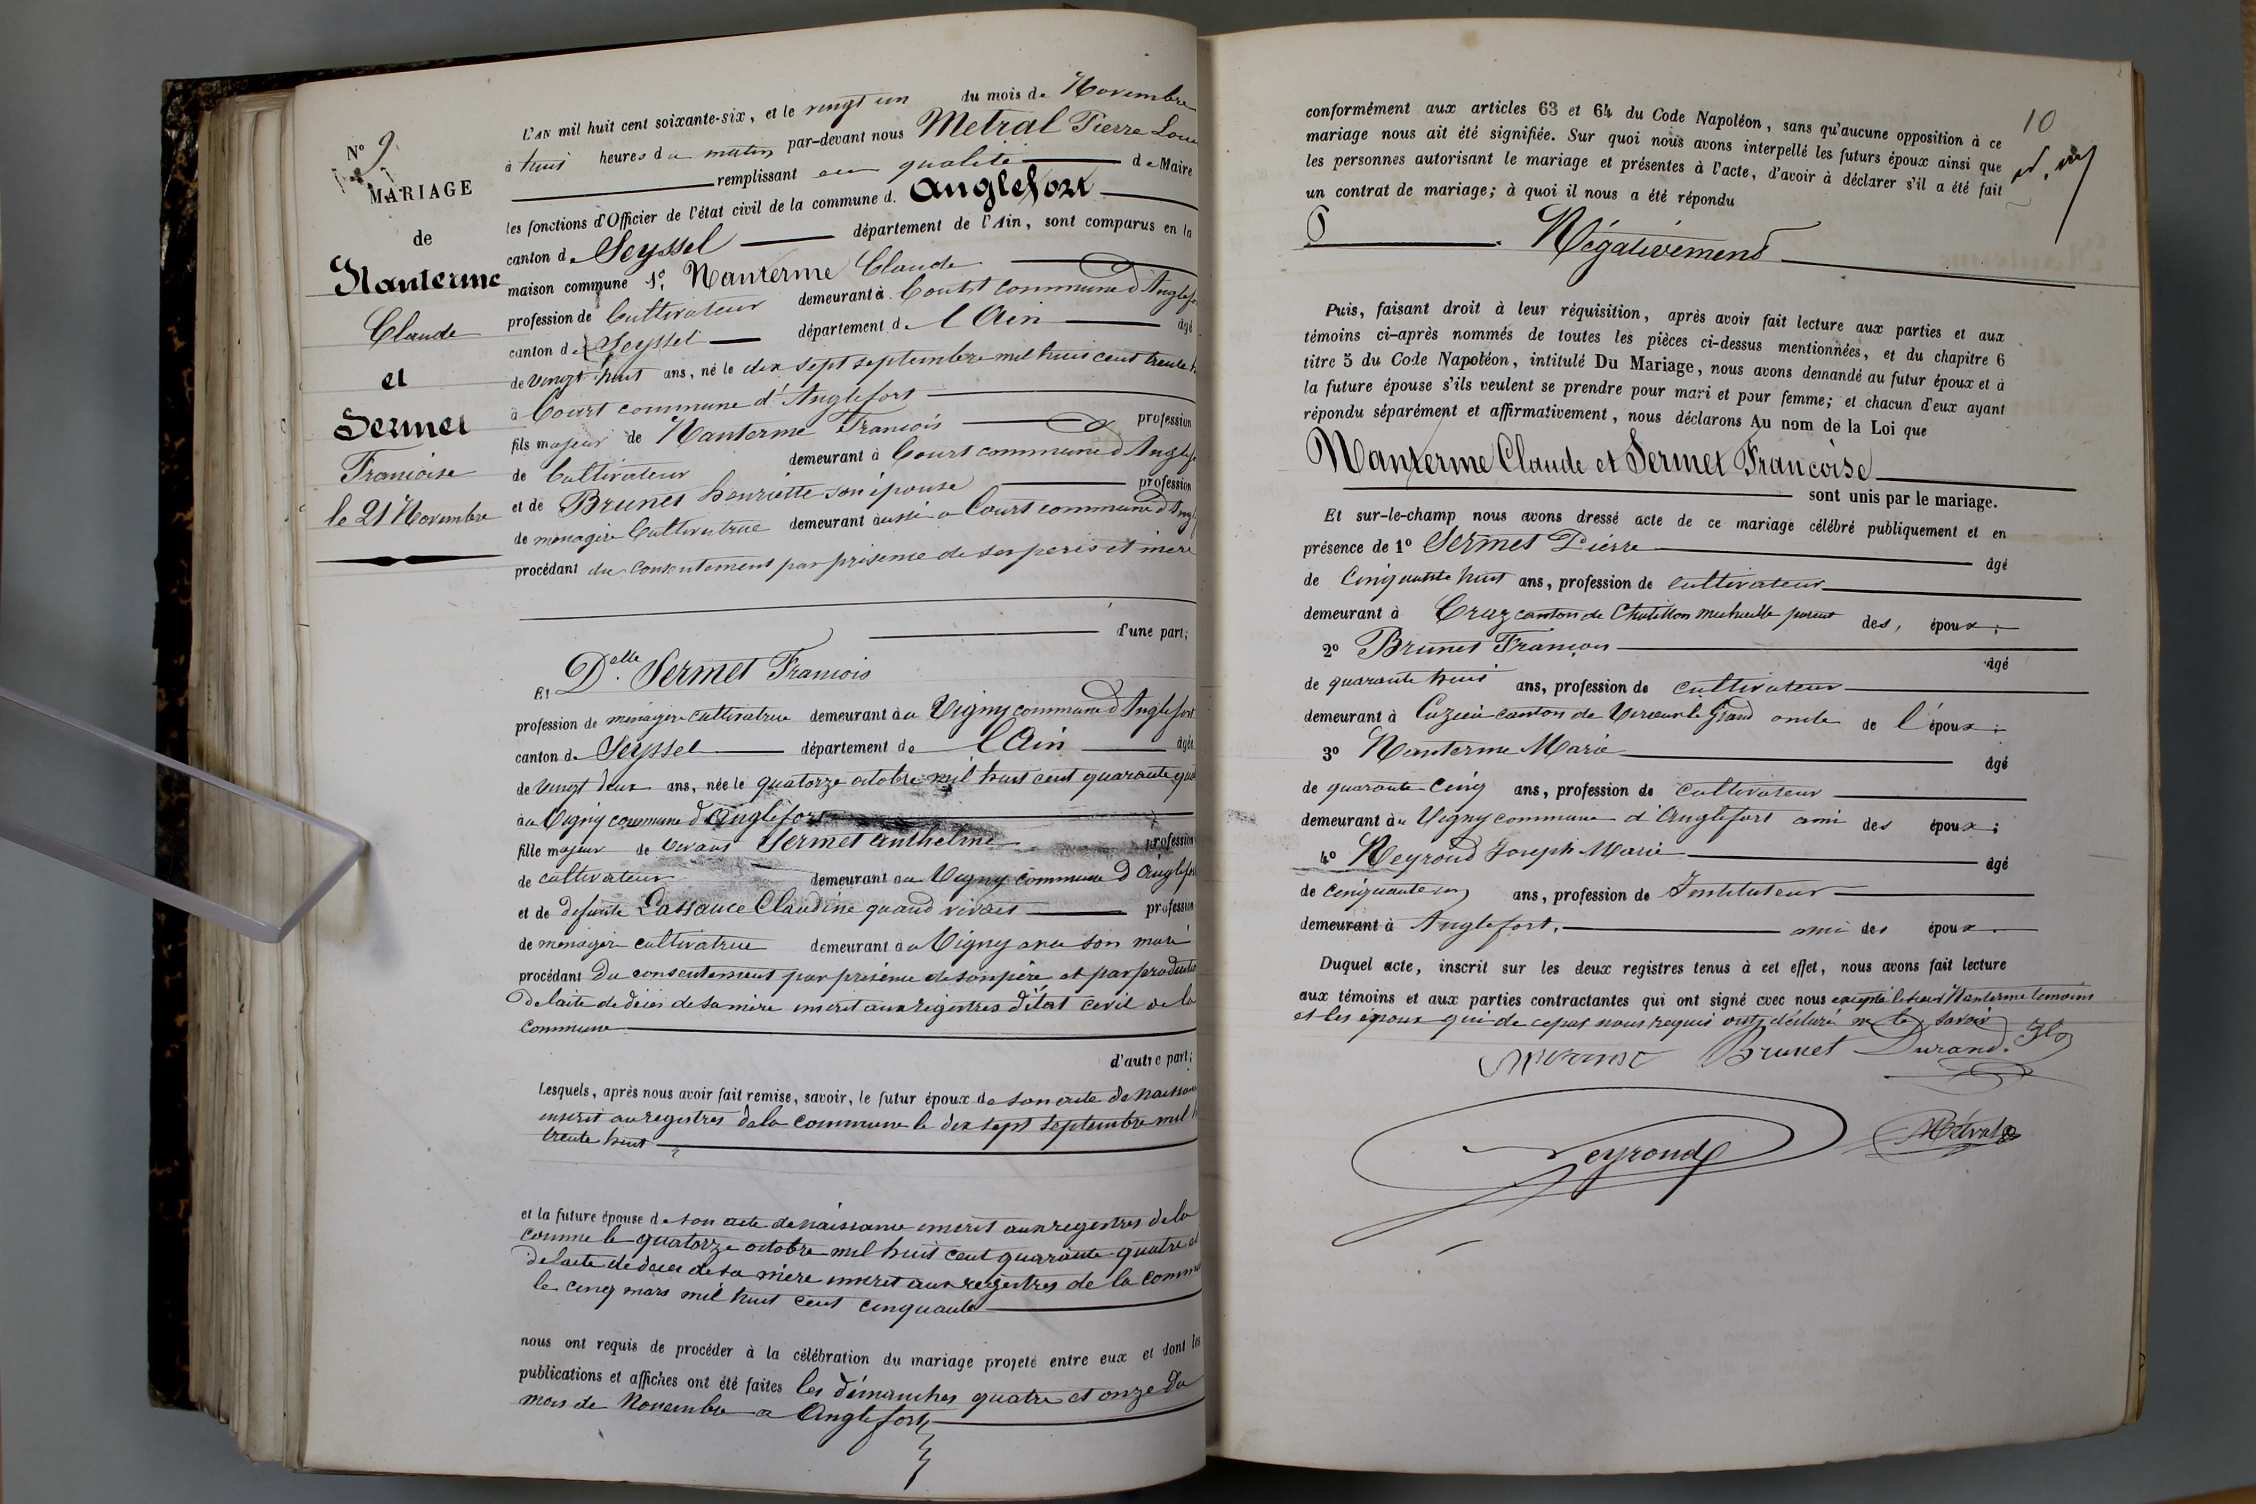 N° 9
MARIAGE
de
Nanterme
Claude
et
Sermet
Francoise
le 21 Novembre
L'AN mil huit cent soixante-six, et le vingt un du mois de Novembre
à huit heures du matin par-devant nous Metral Pierre Loui
remplissant en qualité de Maire
les fonctions d'Officier de l'état civil de la commune d. Anglefort
canton de Seyssel département de l'Ain, sont comparus en la
maison commune 1°. Nanterme Claude
profession de Cultivateur demeurant à Court commune d'Anglefo
canton de Seyssel département de l Ain âgé
de vingt huit ans, né le dix sept septembre mil huit cent trente h
à Court commune d'Anglefort
fils majeur de Nanterme Francois profession
de Cultivateur demeurant à Court commune d Anglef
et de Brunet henriette son épouse profession
de menagère Cultivatrice demeurant aussi a Court commune d Ang
procédant du consentement par présence de ses peres et mere
d'une part;
Et Delle. Sermet Francois
profession de menagere cultivatrice demeurant à au Vigny commune d Anglefort
canton de Seyssel département de l Ain âgée
de vingt deux ans, née le quatorze octobre mil huit cent quarante qua
à au Vigny commune d Anglefort
fille majeur de vivant Sermet anthelme profession
de cultivateur demeurant au Vigny commune d Anglefor
et de defunte Lassauce Claudine quand vivait profession
de menagère cultivatrice demeurant à au Vigny avec son mari
procédant du consentement par présence de son père et par production
De laite de décès de sa mère inscrit aux registres d'état civil de la
commune
d'autre part;
Lesquels, après nous avoir fait remise, savoir, le futur époux de son acte de naissan
inscrit au registres de la commune le dix sept septembre mil h
trente huit
et la future épouse de son acte de naissance inscrit aux registres de la
comune le quatorze octobre mil huit cent quarante quatre et
de laite de décès de sa mère inscrit aux registres de la commu
le cinq mars mil huit cent cinquante
nous ont requis de procéder à la célébration du mariage projeté entre eux et dont les
publications et affiches ont été faites les démanches quatre et onze du
mois de Novembre a Anglefort
10
conformément aux articles 63 et 64 du Code Napoléon, sans qu'aucune opposition à ce
mariage nous ait été signifiée. Sur quoi nous avons interpellé les futurs époux ainsi que
les personnes autorisant le mariage et présentes à l'acte, d'avoir à déclarer s'il a été fait
un contrat de mariage; à quoi il nous a été répondu
Négativement
Puis, faisant droit à leur réquisition, après avoir fait lecture aux parties et aux
témoins ci-après nommés de toutes les pièces ci-dessus mentionnées, et du chapitre 6
titre 5 du Code Napoléon, intitulé Du Mariage, nous avons demandé au futur époux et à
la future épouse s'ils veulent se prendre pour mari et pour femme; et chacun d'eux ayant
répondu séparément et affirmativement, nous déclarons Au nom de la Loi que
Nanterme Claude et Sermet Francoise
sont unis par le mariage.
Et sur-le-champ nous avons dressé acte de ce mariage célébré publiquement et en
présence de 1° Sermet Pierre âgé
de Cinquante huit ans, profession de cultivateur
demeurant à Craz canton de Chatillon parent des, époux;
2° Brunet François âgé
de quarante huit ans, profession de cultivateur
demeurant à Cuzieu canton de Virieu le Grand oncle de l'époux;
3° Nanterme Marie âgé
de quarante Cinq ans, profession de Cultivateur
demeurant àu Vigny commune d'Anglefort ami des époux;
4° Neyroud Joseph Marie âgé
de cinquante un ans, profession de Instituteur
demeurant à Anglefort. ami des époux.
Duquel acte, inscrit sur les deux registres tenus à cet effet, nous avons fait lecture
aux témoins et aux parties contractantes qui ont signé avec nous excepté le sieur Nanterme temoins
et les époux qui de ce par nous requis ont déclaré ne le savoir
Brunet Durand.
Neyroud
Métral